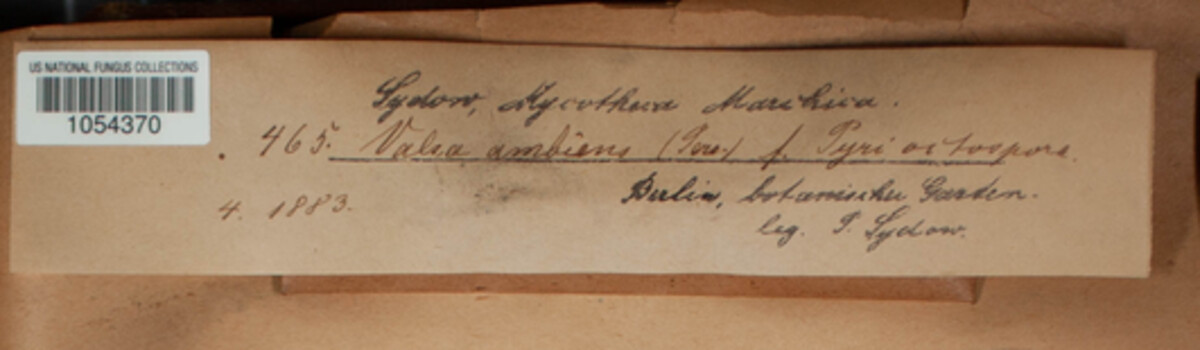 US NATIONAL FUNGUS COLLECTIONS
1054370
Sydow, Mycotheca Marchica.
465. Valsa ambiens (Pers.) f. Pyri octospora.
4. 1883.
Berlin, botanischer Garten.
leg. P. Sydow.